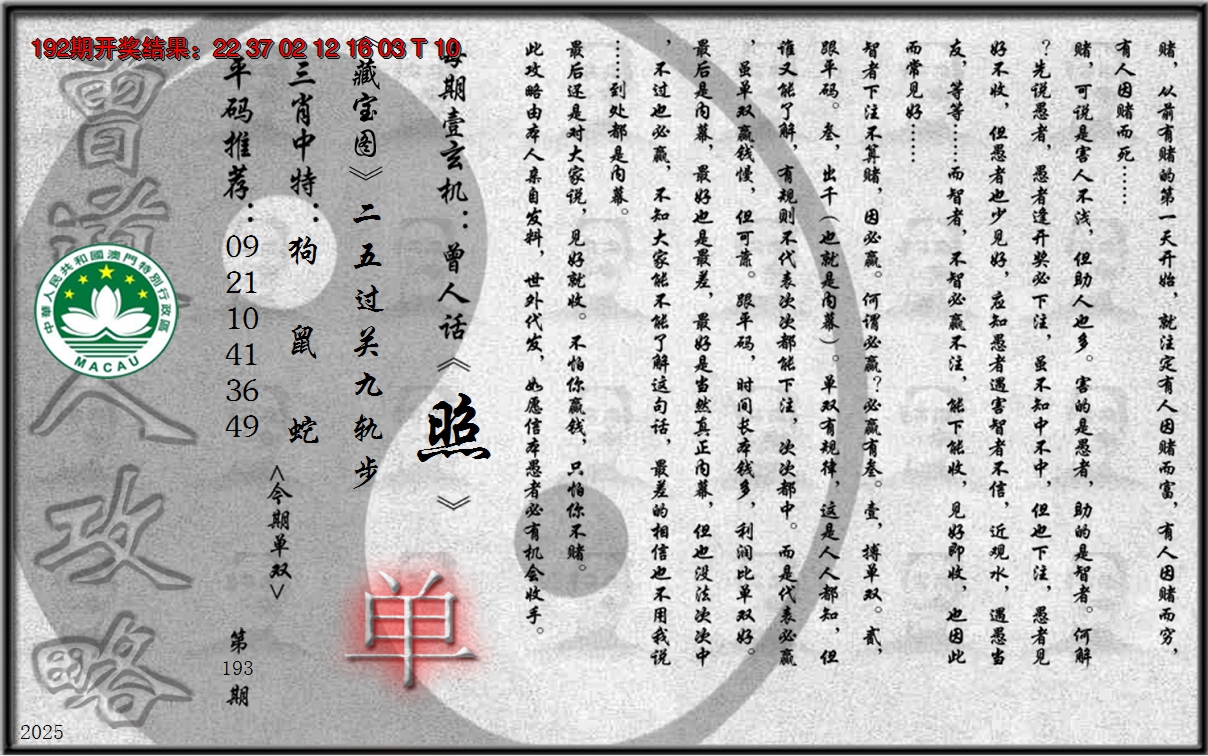 192期开奖结果：22 37 02 12 16 03 T 10
赌，从前有赌的第一天开始，就注定有人因赌而富，有人因赌而穷，
有人因赌而死……
赌，可说是害人不浅，但助人也多。害的是愚者，助的是智者。何解
？先说愚者，愚者逢开奖必下注，虽不知中不中，但也下注，愚者见
好不收，但愚者也少见好，应知愚者遇害智者不信，近观水，遇愚当
友，等等……而智者，不智必赢不注，能下能收，见好即收，也因此
而常见好……
智者下注不算赌，因必赢。何谓必赢？必赢有叁。壹，搏单双。贰，
跟平码。叁，出千（也就是内幕）。单双有规律，这是人人都知，但
谁又能了解，有规则不代表次次都能下注，次次都中。而是代表必赢
，虽单双赢钱慢，但可靠。跟平码，时间长本钱多，利润比单双好。
最后是内幕，最好也是最差，最好是当然真正内幕，但也没法次次中
，不过也必赢，不知大家能不能了解这句话，最差的相信也不用我说
……到处都是内幕。
最后还是对大家说，见好就收。不怕你赢钱，只怕你不赌。
此攻略由本人亲自发料，世外代发，如愿信本愚者必有机会收手。
每期壹玄机：曾人话《照》
《藏宝图》二五过关九轨步
单
三肖中特：狗 鼠 蛇
<今期单双>
平码推荐：09 21 10 41 36 49
第193期
曾道人攻略
中華人民共和國澳門特別行政區
MACAU
2025